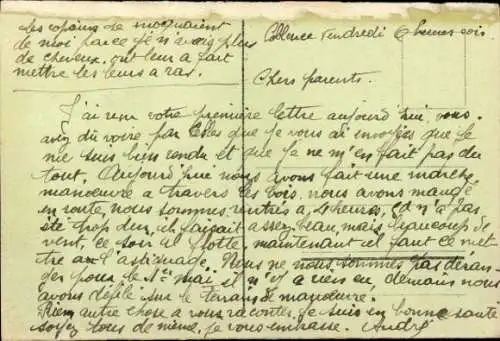 les copains se moquaient
de moi parce je n'avais plus
de cheveux. ont leur a fait
mettre les leurs a ras.
Coblence Vendredi 6 heures soir.
Chers parents.
J'ai reçu votre première lettre aujourd'hui, vous
avez du voire par celles que je vous ai envoyées que je
me suis bien rendu et que je ne m'en fait pas du
tout. Aujourd'hui nous avons fait une
manœuvre a travers les bois, nous avons mangé
en route, nous sommes rentrés a 4 heures, ça n'a pas
été trop dur, il faisait assez beau, mais beaucoup de
vent, ce soir il flotte, maintenant il faut ce met-
tre a l'astiquage. Nous ne nous sommes pas déran-
gés pour le 1er mai, il n'y a rien eu, demain nous
avons défilé sur le terrain de manœuvre.
Rien autre chose a vous raconter. je suis en bonne santé
soyez tous de même, je vous embrasse. André